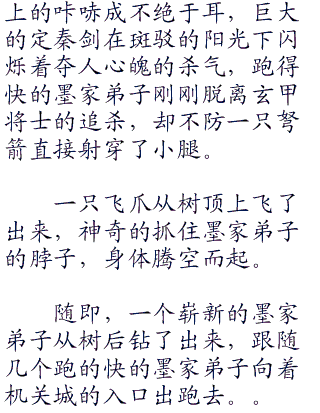 上的咔哧成不绝于耳，巨大
的定秦剑在斑驳的阳光下闪
烁着夺人心魄的杀气，跑得
快的墨家弟子刚刚脱离玄甲
将士的追杀，却不防一只弩
箭直接射穿了小腿。
一只飞爪从树顶上飞了
出来，神奇的抓住墨家弟子
的脖子，身体腾空而起。
随即，一个崭新的墨家
弟子从树后钻了出来，跟随
几个跑的快的墨家弟子向着
机关城的入口出跑去。。